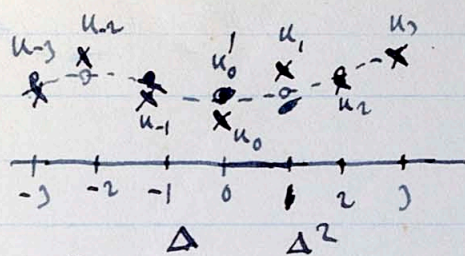 u-3 u-2 u-1 u0' u0 u1 u2 u3
-3 -2 -1 0 1 2 3
Δ Δ²